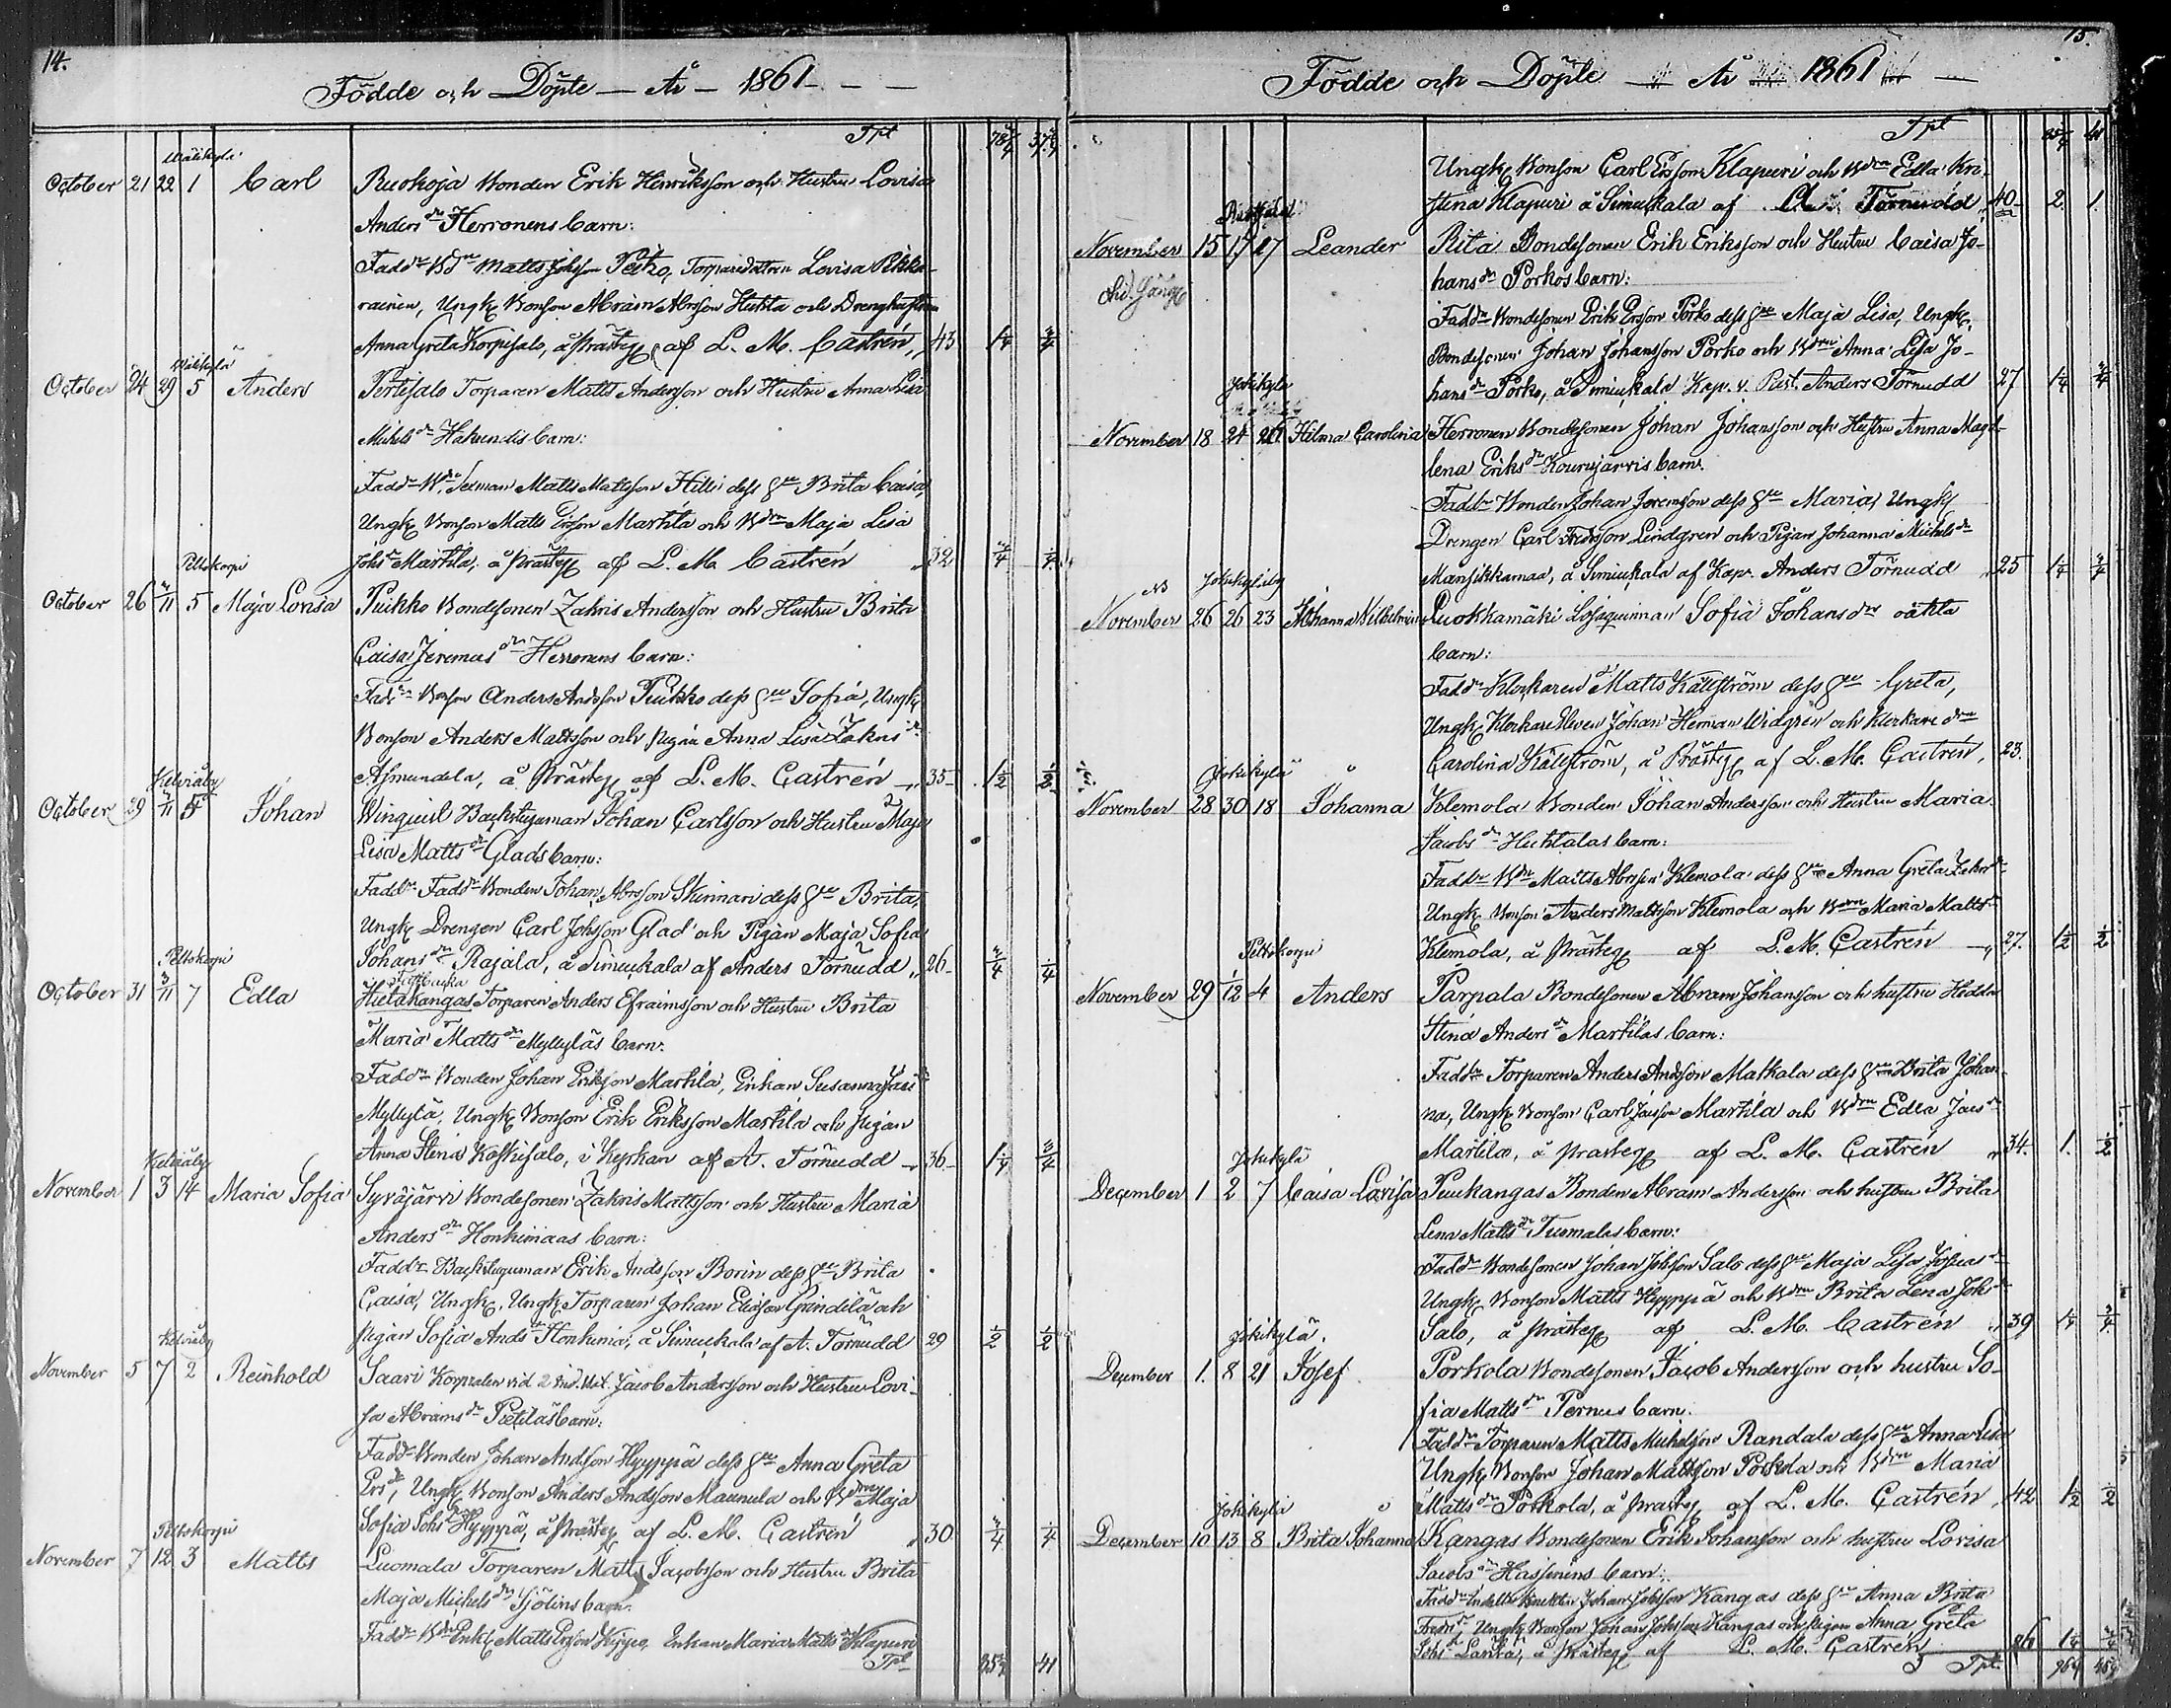 14.
Födde och Döpte — År — 1861 — —
Tpt
Wälikylä
October 21 22 1 Carl Ruokoja Bonden Erik Henriksson och Hustru Lovisa
Anders dr Herronens barn:
Matts Johsson Peitso, Lovisa
rainen, Ungk. Bonson Abram Abrsson Huhta och Drenghustrun
Anna Greta Korpisalo, å Prästeg. af L. M. Castrén 43 1¼ ¾
Wälikylä
October 24 29 5 Anders Pertisalo Torparen Matts Andersson och Hustru Anna Lisa
Michels dr Hakundis barn:
Matts Mattsson Hilli dess h:u Brita Caisa,
Ungk. Bonson Matts Ersson Martila och Bdrn Maja Lisa
Johs dr Martila, å Prästeg. af L. M. Castrén 32 ¾ ¼
Peltokorpi
October 26 2/11 5 Maja Lovisa Puikko Bondesonen Zakris Andersson och Hustru Brita
Caisa Jeremias dr Herronens barn:
Fadd:r Bonson Anders Andsson Puikko dess h:u Sofia, Ungk.
Bonson Anders Mattsson och Pigan Anna Lisa Zakris dr
Asmundela, å Prästeg. af L. M. Castrén 35 1½ ½
Kelviåby
October 29 /11 5 Johan Winquist Backstuguman Johan Carlsson och Hustru Maja
Lisa Matts dr Glads barn:
Fadd:r Fadd:r Bonden Johan Abrsson Skinnari dess h:u Brita,
Ungk. Drengen Carl Johsson Glad och Pigan Maja Sofia
Johans dr Rajala, å Simukala af Anders Törnudd 26 ¾ ¼
Peltokorpi
October 31 3/11 7 Edla Hietakangas Torparen Anders Efraimsson och Hustru Brita
Maria Matts dr Myllyläs barn.
Fadd:r Bonden Johan Eriksson Martila, Enkan Susanna
Myllylä, Ungk. Bonson Erik Eriksson Martila och Pigan
Anna Stina Koskisalo, i Kyrkan af A. Törnudd 36 1¼ ¾
Kelviåby
November 1 3 14 Maria Sofia Syväjärvi Bondesonen Zakris Mattsson och Hustru Maria
Anders dr Honkimaas barn:
Fadd:r Backstuguman Erik Andsson Borin dess h:u Brita
Caisa, Ungk. Ungk. Torparen Johan Eliasson Grindilä och
Pigan Sofia Ands dr Honkima, å Simukala af A. Törnudd 29 ½ ½
Kelviåby
November 5 7 2 Reinhold Saari Korpralen vid 2 Jacob Andersson och Hustru Lovi-
sa Abrams dr Pietiläs barn:
Fadd:r Bonden Johan Andsson Hyyppä dess h:u Anna Greta
Ers dr, Ungk. Bonson Anders Andsson Maunula och Bdrn Maja
Sofia Johs dr Hyyppä, å Prästeg. af L. M. Castrén 30 ¾ ¼
Peltokorpi
November 7 12 3 Matts Luomala Torparen Matts Jacobsson och Hustru Brita
Maja Michels dr Sjölins barn.
Matts Ersson Enkan Maria Matts dr Klapuri
Tpt 41
15.
Födde och Döpte — År — 1861 —
Tpt 41
Ungk. Bonson Carl Ersson Klapuri och Bdrn Edla Kri-
stina Klapuri å Simukala af A. Törnudd 40 2. 1.
November 15 17 27 Leander Rita Bondesonen Erik Eriksson och Hustru Caisa Jo-
hans dr Porkos barn:
Fadd:r Bondesonen Erik Ersson Porko dess h:u Maja Lisa, Ungk.
Bondesonen Johan Johansson Porko och Bdrn Anna Lisa Jo-
hans dr Porko, å Simukala Kap. v. Past. Anders Törnudd 27 1¼ ¾
Jokikylä
November 18 24 Hilma Carolina Herronen Bondesonen Johan Johansson och Hustru Anna Magd-
lena Eriks dr Kourujärvis barn.
Fadd:r Bonden Johan Jeremsson dess h:u Maria, Ungk.
Drengen Carl Lindgren och Pigan Johanna Michels dr
Mansikkamaa, å Simukala af Kap. Anders Törnudd 25 1¼ ¾
NB Jokikyläby
November 26 26 23 Johanna Wilhelmina Luokkamäki Lösaquinnan Sofia Johans dr oäkta
barn:
Fadd:r Klockaren Matts Källström dess h:u Greta,
Ungk. Klockare Eleven Johan Herman Widgrén och Klockare drn
Carolina Källström, å Prästeg. af L. M. Castrén, 23.
Jokikylä
November 28 30 18 Johanna Klemola Bonden Johan Andersson och Hustru Maria
Jacobs dr Huhtalas barn:
Fadd:r Matts Abrsson Klemola dess h:u Anna Greta
Ungk. Bonson Anders Mattsson Klemola och Bdrn Maria Matts dr
Klemola, å Prästeg. af L. M. Castrén 27. 1½ ½
Peltokorpi
November 29 1/12 4 Anders Parpala Bondesonen Abram Johansson och hustru Hedda
Stina Anders dr Martilas barn:
Fadd:r Torparen Anders Andsson Matkala dess h:u Brita Johan-
na, Ungk. Bonson Carl Martila och Bdrn Edla
Martila, å Prästeg. af L. M. Castrén 34. 1. ½
Jokikylä
December 1 2 7 Caisa Lovisa Puukangas Bonden Abram Andersson och hustru Brita
Lena Matts dr Tuomalas barn:
Fadd:r Bondesonen Johan Johsson Salo dess h:u Maja Lisa
Ungk. Bonson Matts Hyyppä och Bdrn Brita Lena Joh dr
Salo, å Prästeg. af L. M. Castrén 39 1¼ ¾
Jokikylä.
December 1. 8 21 Josef Porkola Bondesonen Jacob Andersson och hustru So-
fia Matts dr Pernus barn.
Fadd:r Torparen Matts Michelsson Randala dess h:u Anna Lisa
Ungk. Bonson Johan Mattsson Porkola och Bdrn Maria
Matts dr Porkola, å Prästeg. af L. M. Castrén 42 1½ ½
Jokikylä
December 10 13 8 Brita Johanna Kangas Bondesonen Erik Johansson och hustru Lovisa
Jacobs dr Hassinens barn:
Johan Johsson Kangas dess h:u Anna Brita
Ungk. Bonson Johan Johsson Kangas och Pigan Anna Greta
Johs dr å Prästeg. af L. M. Castrén 26 1¼ ¾
Tpt